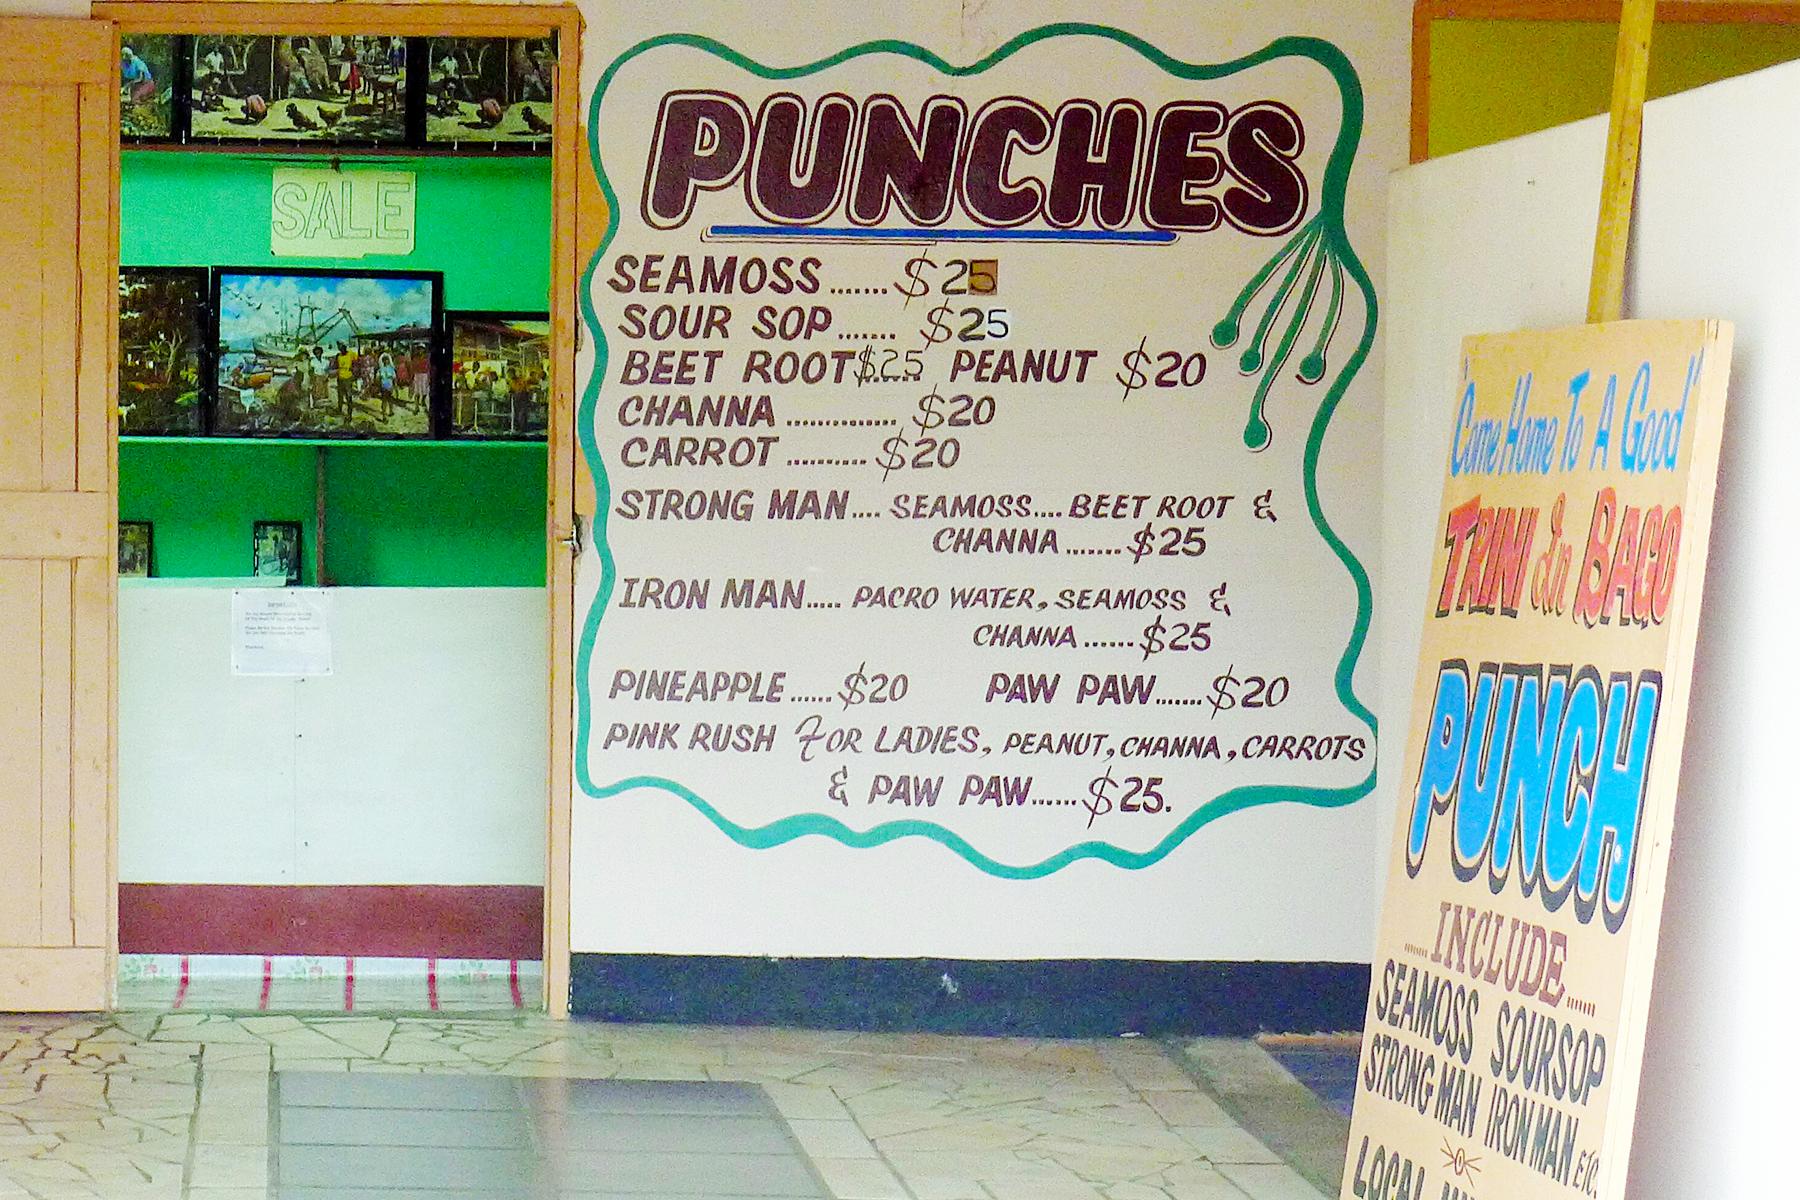 SALE
PUNCHES
SEAMOSS ....... $25
SOUR SOP ....... $25
BEET ROOT $25 PEANUT $20
CHANNA .............. $20
CARROT .......... $20
STRONG MAN.... SEAMOSS.... BEET ROOT &
CHANNA ....... $25
IRON MAN..... PACRO WATER, SEAMOSS &
CHANNA ...... $25
PINEAPPLE ...... $20 PAW PAW....... $20
PINK RUSH FOR LADIES, PEANUT, CHANNA, CARROTS
& PAW PAW...... $25.
"Come Home To A Good"
TRINI In BAGO
PUNCH
...... INCLUDE ......
SEAMOSS SOURSOP
STRONG MAN IRON MAN ETC.
LOCAL